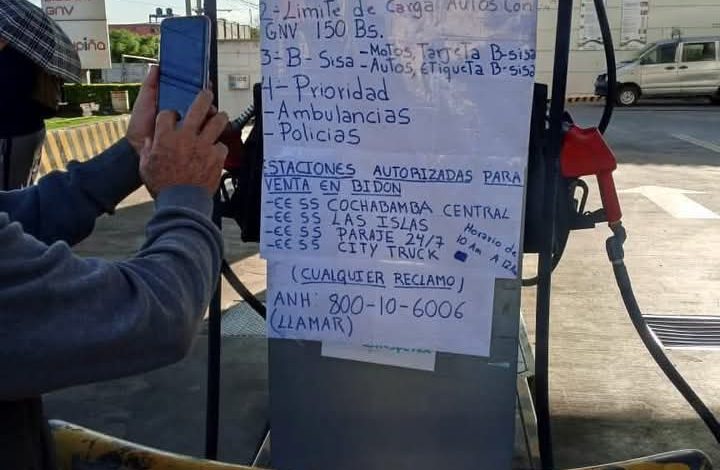 GNV
2-Limite de Carga Autos con
GNV 150 Bs.
3-B-Sisa -Motos, Tarjeta B-sisa
-Autos, Etiqueta B-sisa
4-Prioridad
-Ambulancias
-Policias
ESTACIONES AUTORIZADAS PARA
VENTA EN BIDON
-EE SS COCHABAMBA CENTRAL
-EE SS LAS ISLAS
-EE SS PARAJE 24/7
-EE SS CITY TRUCK
Horario de
10 Am A 12
(CUALQUIER RECLAMO)
ANH: 800-10-6006
(LLAMAR)